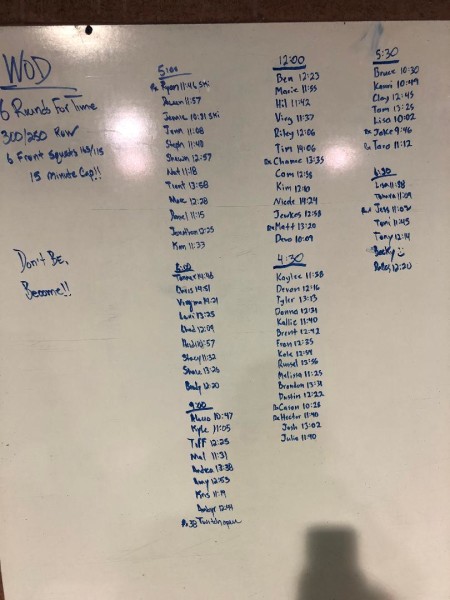 WOD
6 Rounds For Time
300/250 Row
6 Front Squats 165/115
15 Minute Cap!!
Don't Be,
Become!!
5:00
Rx Ryan 11:46 Ski
11:57
10:31 Ski
Tom 11:08
Steph 11:40
Shawn 12:57
Nat 11:18
Trent 13:58
Marc 12:28
Daniel 11:15
Jonathon 12:25
Kim 11:33
8:00
Tanner 14:48
Chris 14:51
Virginia 14:21
Levi 13:25
Chad 12:09
Stacy 11:32
Shane 13:26
Brady 12:20
9:00
Marco 10:47
Kyle 11:05
Tiff 12:25
Mal 11:31
Andrea 13:38
Amy 12:53
Kris 11:19
12:44
12:00
Ben 12:23
Marie 11:55
Hil 11:42
Virg 11:37
Riley 12:06
Tim 14:06
Rx Chance 13:35
Cam 12:55
Kim 12:10
Nicole 14:24
Jewkes 12:58
Rx Matt 13:20
Devo 10:09
4:30
Kaylee 11:58
Devon 12:16
Tyler 13:13
Donna 12:31
Kallie 11:40
Brent 12:42
Fran 12:35
Kole 12:54
Russel 13:56
Melissa 11:25
Brandon 13:31
Dustin 12:22
Rx Casan 10:28
Rx Hector 11:40
Josh 13:02
Julie 11:40
5:30
Bruce 10:30
Kami 10:49
Clay 12:45
Tom 13:25
Lisa 10:02
Rx Jake 9:46
Rx Taro 11:12
6:30
Lisa 11:28
Tamara 11:09
Jess 11:02
Tami 11:45
Tony 12:14
Becky
12:20